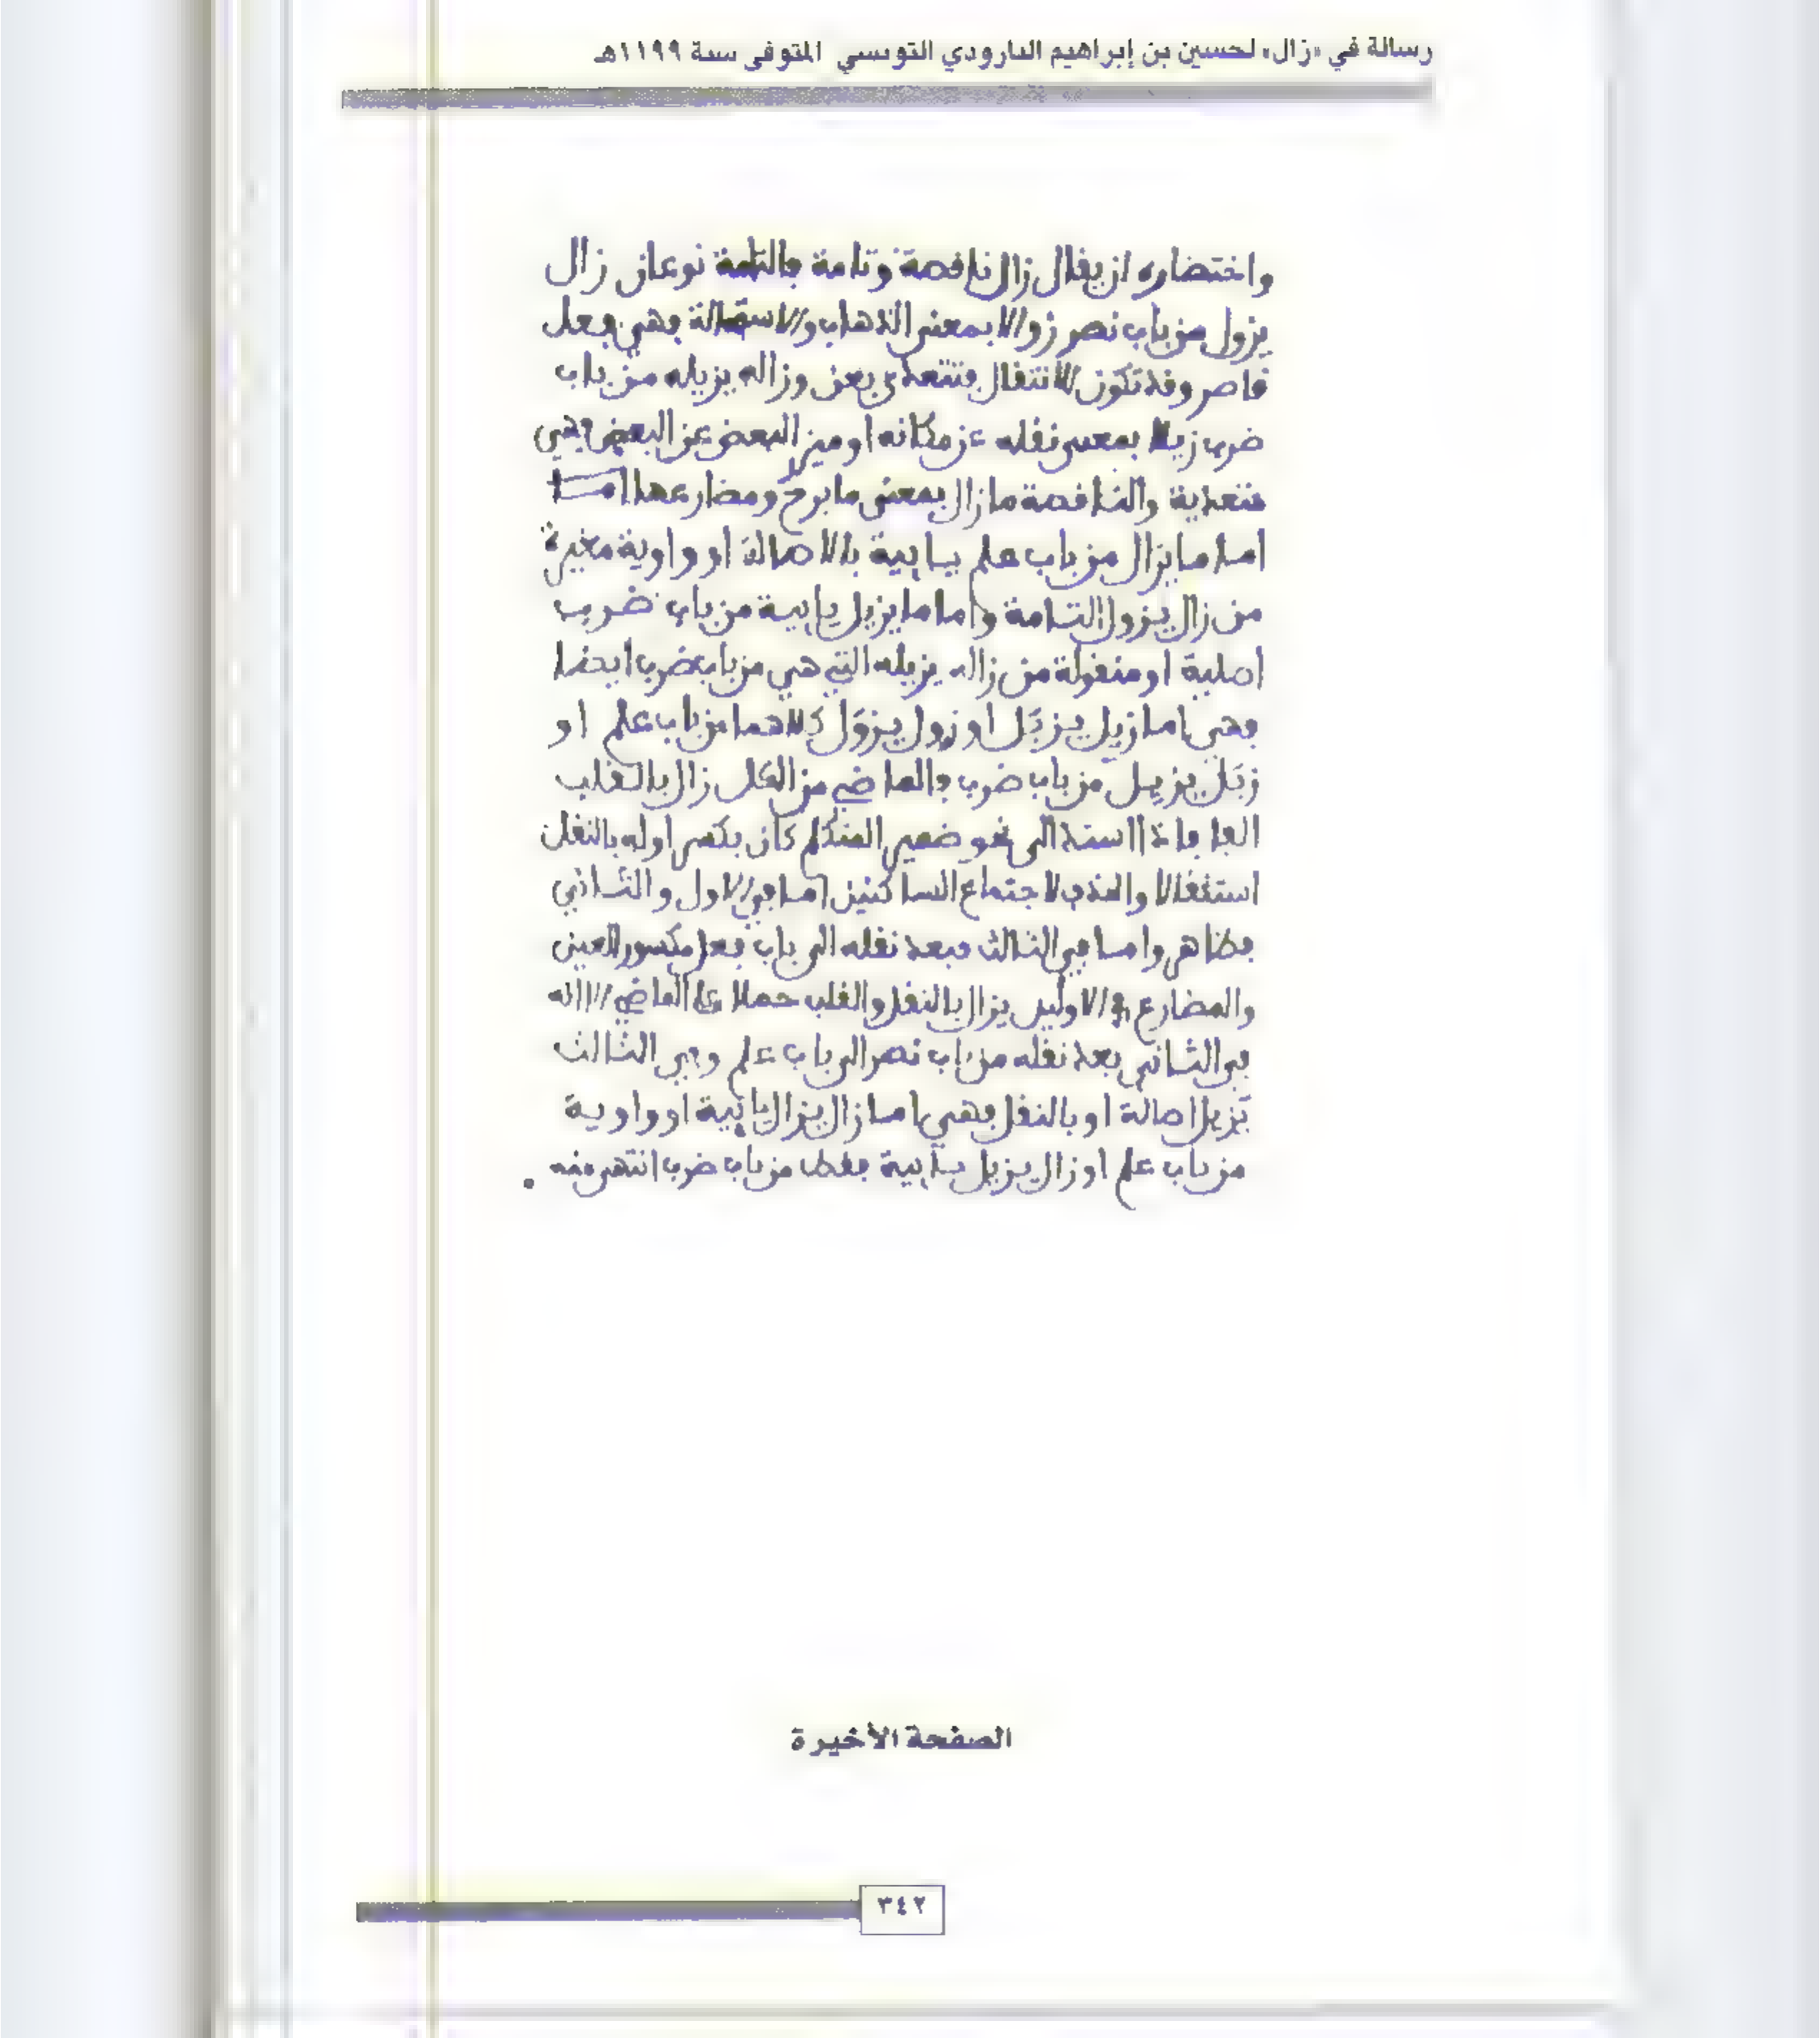 رسالة في «زال» لحسين بن إبراهيم البارودي التونسي المتوفى سنة ١١٩٩هـ
واختصاره ان يقال زال ناقصة وتامة فالتامة نوعان زال
يزول من باب نصر زوالا بمعنى الذهاب والاستحالة فهي فعل
قاصر وقد تكون للانتقال فتتعدى بعن وزاله يزيله من باب
ضرب زيلا بمعنى نقله عن مكانه او ميز البعض عن البعض فهي
متعدية والناقصة ما زال بمعنى ما برح ومضارعها امــا
اما ما يزال من باب علم يايية بالاصالة او واوية مغيرة
من زال يزول التامة واما ما يزيل يايية من باب ضرب
اصلية او منقولة من زاله يزيله التي هي من باب ضرب ايضا
فهي اما زيل يزيل او زول يزول كلاهما من باب علم او
زيل يزيل من باب ضرب فالماضي من الكل زال بالقلب
الفا فاذا اسند الى نحو ضمير المتكلم كان بكسر اوله بالنقل
استثقالا والحذف لاجتماع الساكنين اما في الاول والثاني
فظاهر واما في الثالث فبعد نقله الى باب فعل مكسور العين
والمضارع في الاولين يزال بالنقل والقلب حملا على الماضي الا انه
في الثاني بعد نقله من باب نصر الى باب علم وفي الثالث
يزيل اصالة او بالنقل فهي اما زال يزال يائية او واوية
من باب علم او زال يزيل يايية فقط من باب ضرب انتهى منه .
الصفحة الأخيرة
٣٤٢